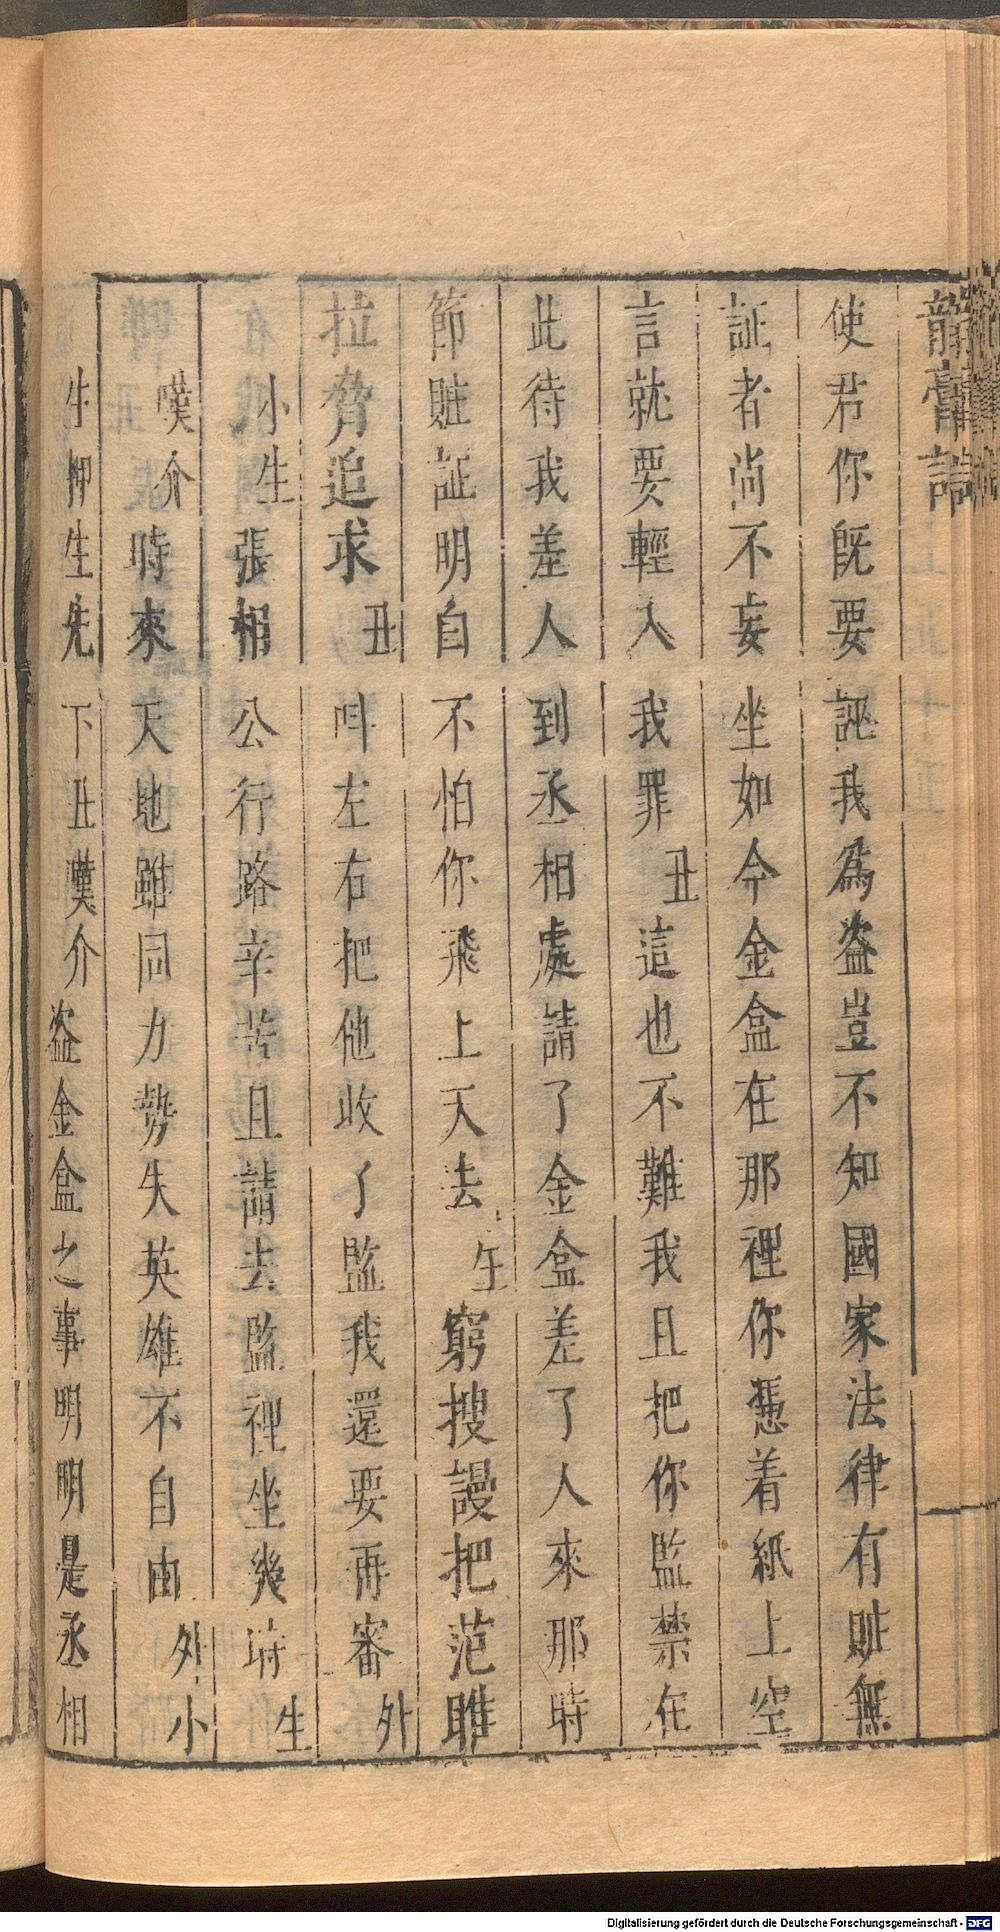 龍膏記
使君你既要誣我爲盗豈不知國家法律有賍無
証者尚不妄坐如今金盒在那裡你憑着紙上空
言就要輕入我罪丑這也不難我且把你監禁在
此待我差人到丞相處請了金盒差了人來那時
節賍証明白不怕你飛上天去生窮搜謾把范雎
拉脅追求丑叫左右把他收了監我還要再審外
小生張相公行路辛苦且請去監裡坐幾時生
嘆介時來天地雖同力勢失英雄不自由外小
生押生先下丑嘆介盗金盒之事明明是丞相
Digitalisierung gefördert durch die Deutsche Forschungsgemeinschaft - DFG